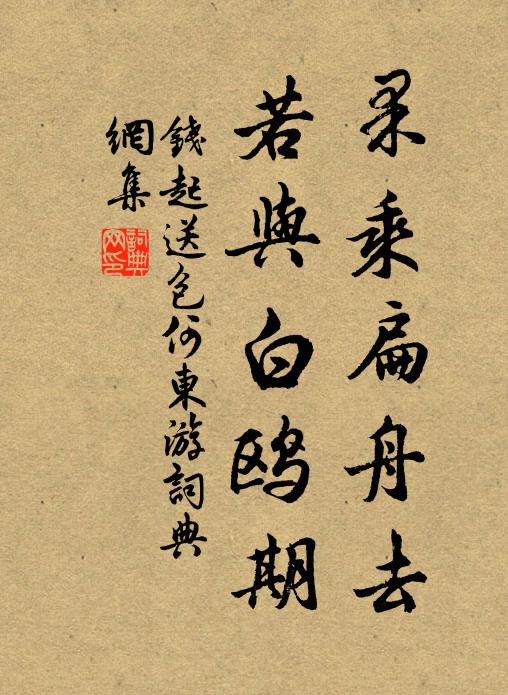 果乘扁舟去
若與白鷗期
錢起送包何東游詞典
網集
詞典
网印